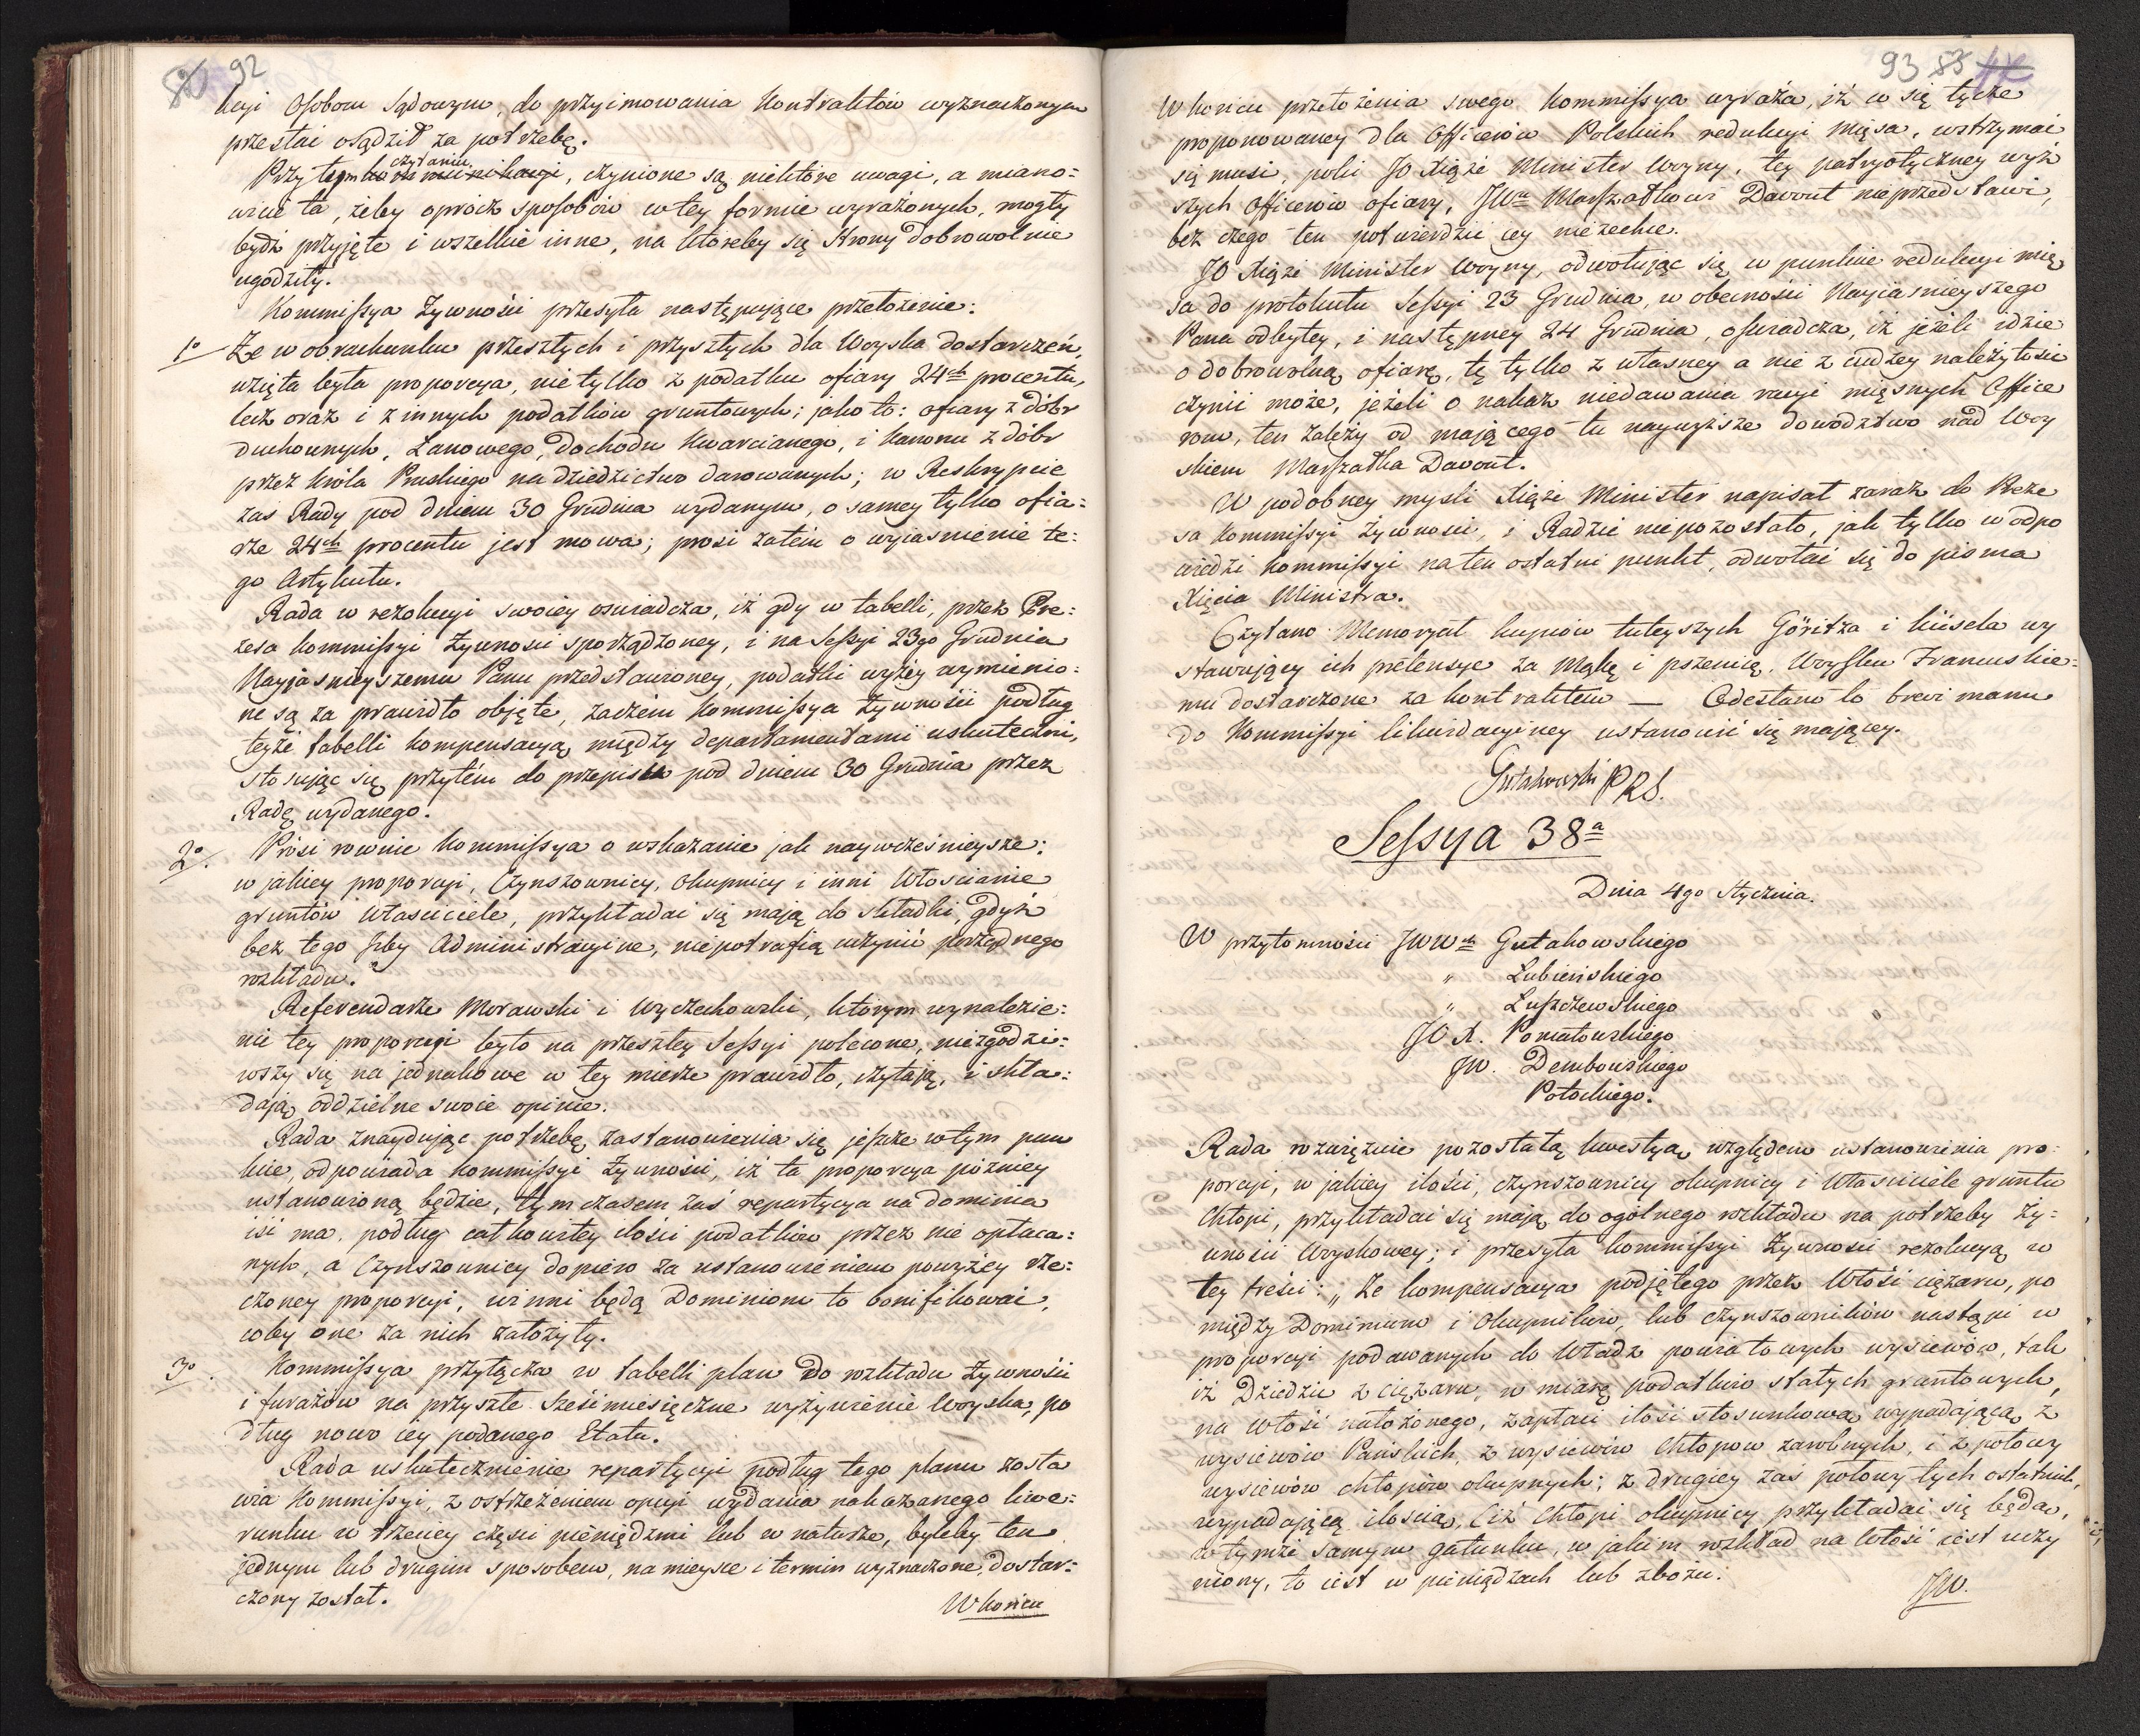 92
kcyi Osobom Sądowym, do przyimowania Kontraktów wyznaczonym
przestać osądził za potrzebę.
Przytem czytaniu, czynione są niektóre uwagi, a miano=
wicie ta, żeby oprócz sposobów w tey formie wyrażonych, mogły
bydź przyjęte i wszelkie inne, na któreby się Strony dobrowolnie
ugodziły.
Kommissya Żywności przesyła następujące przełożenie:
1o Że w obrachunku przeszłych i przyszłych dla Woyska dostarczeń,
wzięta była proporcya, nie tylko z podatku ofiary 24ch procentu,
lecz oraz i z innych podatków gruntowych; jako to: ofiary z dóbr
duchownych, Łanowego, Dochodu Kwarcianego, i Kanonu z dóbr
przez Króla Pruskiego na dziedzictwo darowanych; w Reskrypcie
zas Rady pod dniem 30 Grudnia wydanym, o samey tylko ofia=
rze 24ch procentu jest mowa; prosi zatém o wyiasnienie te=
go Artykułu.
Rada w rezolucyi swoiey oswiadcza, iż gdy w tabelli, przez Pre=
zesa Kommissyi Żywności sporządzoney, i na Sessyi 23go Grudnia
Nayjasnieyszemu Panu przedstawioney, podatki wyżey wymienio=
ne są za prawidło objęte, zaczém Kommissya Żywności podług
teyże tabelli kompensacyą między departamentami uskuteczni,
stosując się przytém do przepisu pod dniem 30 Grudnia przez
Radę wydanego.
2o. Prosi rownie Kommissya o wskazanie jak naywcześnieysze:
w jakiey proporcyi, Czynszownicy, Okupnicy i inni Włoscianie
gruntów Własciciele, przykładać się mają do składki, gdyż
bez tego Izby Administracyine, niepotrafią uczynić porządnego
rozkładu.
Referendarze Morawski i Wyczechowski, którym wynalezie=
nie tey proporcyi było na przeszłey Sessyi polecone, niezgodzi=
wszy się na jednakowe w tey mierze prawidło, czytają, i skła=
dają oddzielne swoie opinie.
Rada znaydując potrzebę zastanowienia się jeszcze w tym pun
kcie, odpowiada Kommissyi Żywności, iż ta proporcya pózniey
ustanowioną będzie, tymczasem zaś repartycya na dominia
iść ma, podług całkowitey ilości podatków przez nie opłaca=
nych, a Czynszownicy dopiero za ustanowieniem powyżey rze=
czoney proporcyi, winni będą Dominiom to bonifikować,
coby one za nich założyły.
3o. Kommissya przyłącza w tabelli plan do rozkładu żywności
i furażów na przyszłe sześćmiesięczne wyżywienie Woyska, po
dług nowo iey podanego Etatu.
Rada uskutecznienie repartycyi podług tego planu zosta
wia Kommissyi, z ostrzeżeniem opcyi wydania nakazanego liwe=
runku w trzeciey części pieniędzmi lub w naturze, byleby ten
jednym lub drugim sposobem, na mieysce i termin wyznaczone, dostar=
czony został.
W końcu
93 83
W końcu przełożenia swego Kommissya wyraża, iż co się tycze
proponowaney dla Officerów Polskich redukcyi mięsa, wstrzymać
się musi, póki JO Xiąże Minister Woyny, tey patryotyczney wyż
szych Officerów ofiary, JWmu Marszałkowi Davout nieprzedstawi,
bez czego ten potwierdzić iey niezechce.
JO Xiąże Minister Woyny, odwołując się w punkcie redukcyi mię
sa do protokułu Sessyi 23 Grudnia, w obecności Nayiasnieyszego
Pana odbytey, i następney 24 Grudnia, oswiadcza, iż jeżeli idzie
o dobrowolną ofiarę, tę tylko z własney a nie z cudzey należytości
czynić może, jeżeli o nakaz niedawania racyi mięsnych Office
rom, ten zależy od mającego tu naywyższe dowództwo nad Woy
skiem Marszałka Davout.
W podobney mysli Xiąże Minister napisał zaraz do Preze
sa Kommissyi Żywności, i Radzie niepozostało, jak tylko w odpo
wiedzi Kommissyi na ten ostatni punkt, odwołać się do pisma
Xięcia Ministra.
Czytano Memoryał kupców tuteyszych Göritza i Küsela wy
stawuiący ich pretensye za Mąkę i pszenicę, Woysku Francuskie=
mu dostarczone za kontraktem — Odesłano to brevi manu
do Kommissyi likwidacyiney ustanowić się maiącey.
Gutakowski PRS.
Sessya 38a
Dnia 4go Stycznia.
W przytomności JWWch Gutakowskiego
" Lubieńskiego
" Łuszczewskiego
JO X. Poniatowskiego
JW. Dembowskiego
Potockiego.
Rada rozwiąznie pozostałą kwestyą względem ustanowienia pro=
porcyi, w jakiey ilości, czynszownicy okupnicy i Własciciele gruntu
Chłopi, przykładać się mają do ogólnego rozkładu na potrzeby Ży=
wności Woyskowey; i przesyła Kommissyi Żywności rezolucyą w
tey treści: „Że kompensacya podjętego przez Włości ciężaru, po
między Dominium i Okupników, lub czynszowników nastąpi w
proporcyi podawanych do Władz powiatowych wysiewów, tak
iż Dziedzic z ciężaru, w miarę podatków stałych gruntowych,
na włość nałożonego, zapłaci ilość stosunkową wypadającą z
wysiewów Pańskich, z wysiewów Chłopow zarobnych, i z połowy
wysiewów chłopów okupnych; z drugiey zaś połowy tych ostatnich,
wypadającą ilością, Ciż Chłopi okupnicy przykładać się będą,
w tymże samym gatunku, w jakim rozkład na włość iest uczy
niony, to iest w pieniądzach lub zbożu.
JW.